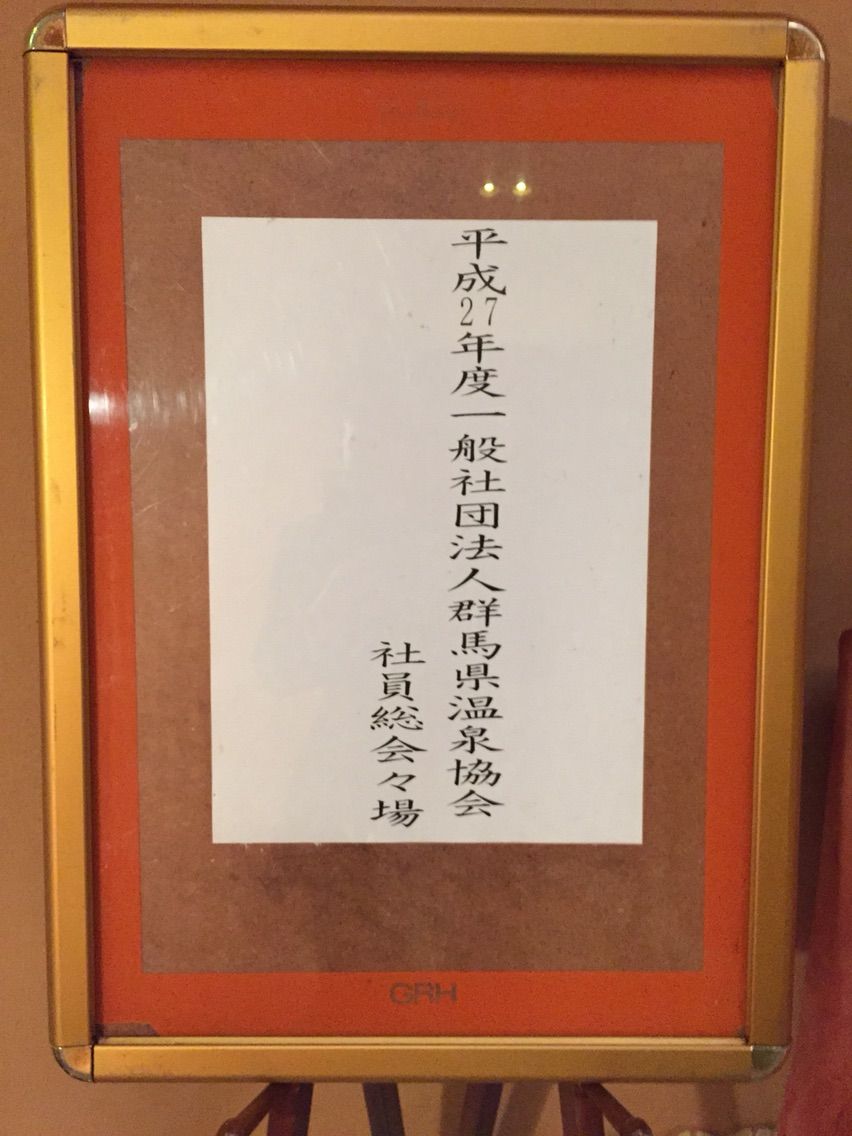 平成27年度一般社団法人群馬県温泉協会
社員総会々場
GRH